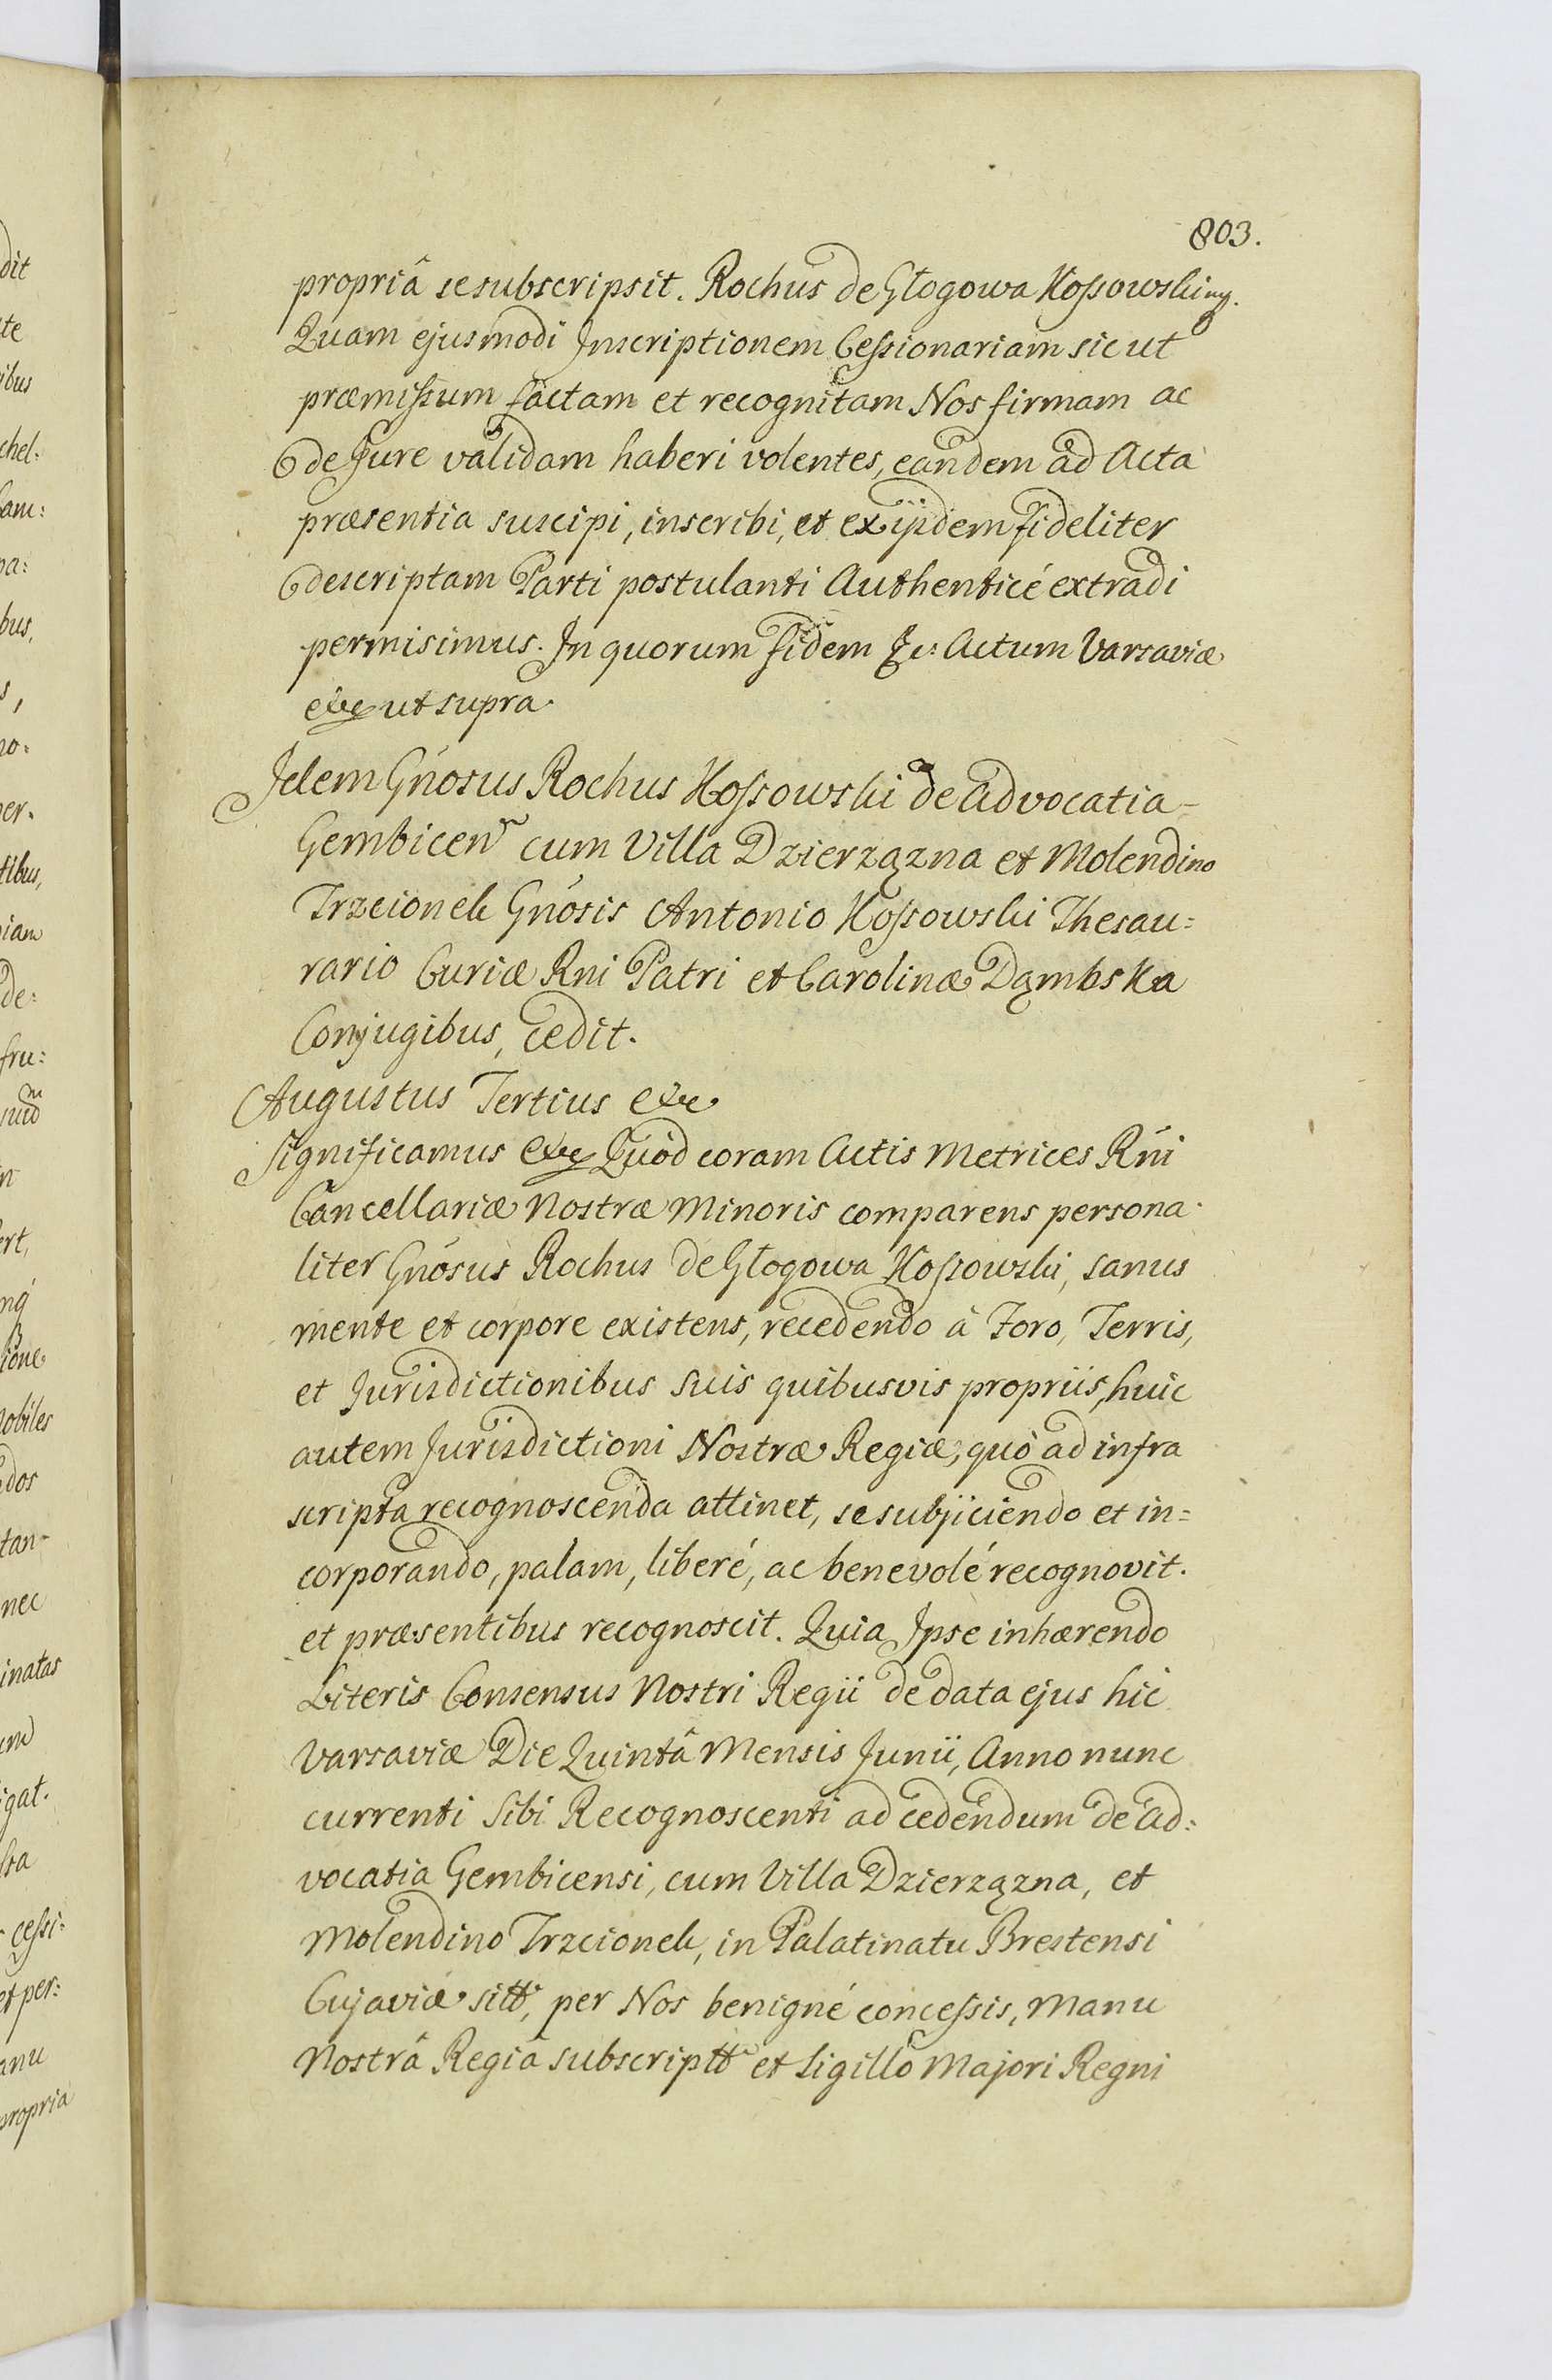 803.
propriâ se subscripsit. Rochus de Głogowa Kossowski mp.
Quam ejusmodi Inscriptionem Cessionariam sic ut
præmissum factam et recognitam Nos firmam ac
de Jure validam haberi volentes, eandem ad Acta
præsentia suscipi, inscribi, et ex ijsdem fideliter
descriptam Parti postulanti Authenticé extradi
permisimus. In quorum fidem &c: Actum Varsaviæ
etc ut supra.
Idem Gnosus Rochus Kossowski de Advocatia
Gembicen cum Villa Dzierzązna et Molendino
Trzcionek Gnosis Antonio Kossowski Thesau:
rario Curiæ Rni Patri et Carolinæ Dąmbska
Conjugibus, cedit.
Augustus Tertius etc
Significamus etc Quod coram Actis Metrices Rni
Cancellariæ Nostræ Minoris comparens persona
liter Gnosus Rochus de Głogowa Kossowski, sanus
mente et corpore existens, recedendo à Foro, Terris,
et Jurisdictionibus suis quibusvis propriis, huic
autem Jurisdictioni Nostræ Regiæ, quò ad infra
scripta recognoscenda attinet, se subjiciendo et in=
corporando, palam, liberé, ac benevolé recognovit.
et præsentibus recognoscit. Quia Ipse inhærendo
Literis Consensus Nostri Regii de data ejus hic
Varsaviæ Die Quintâ Mensis Junii, Anno nunc
currenti Sibi Recognoscenti ad cedendum de Ad:
vocatia Gembicensi, cum Villa Dzierzązna, et
Molendino Trzcionek, in Palatinatu Brestensi
Cujaviæ sitt, per Nos benigné concessis, Manu
Nostrâ Regiâ subscriptt et Sigillo Majori Regni